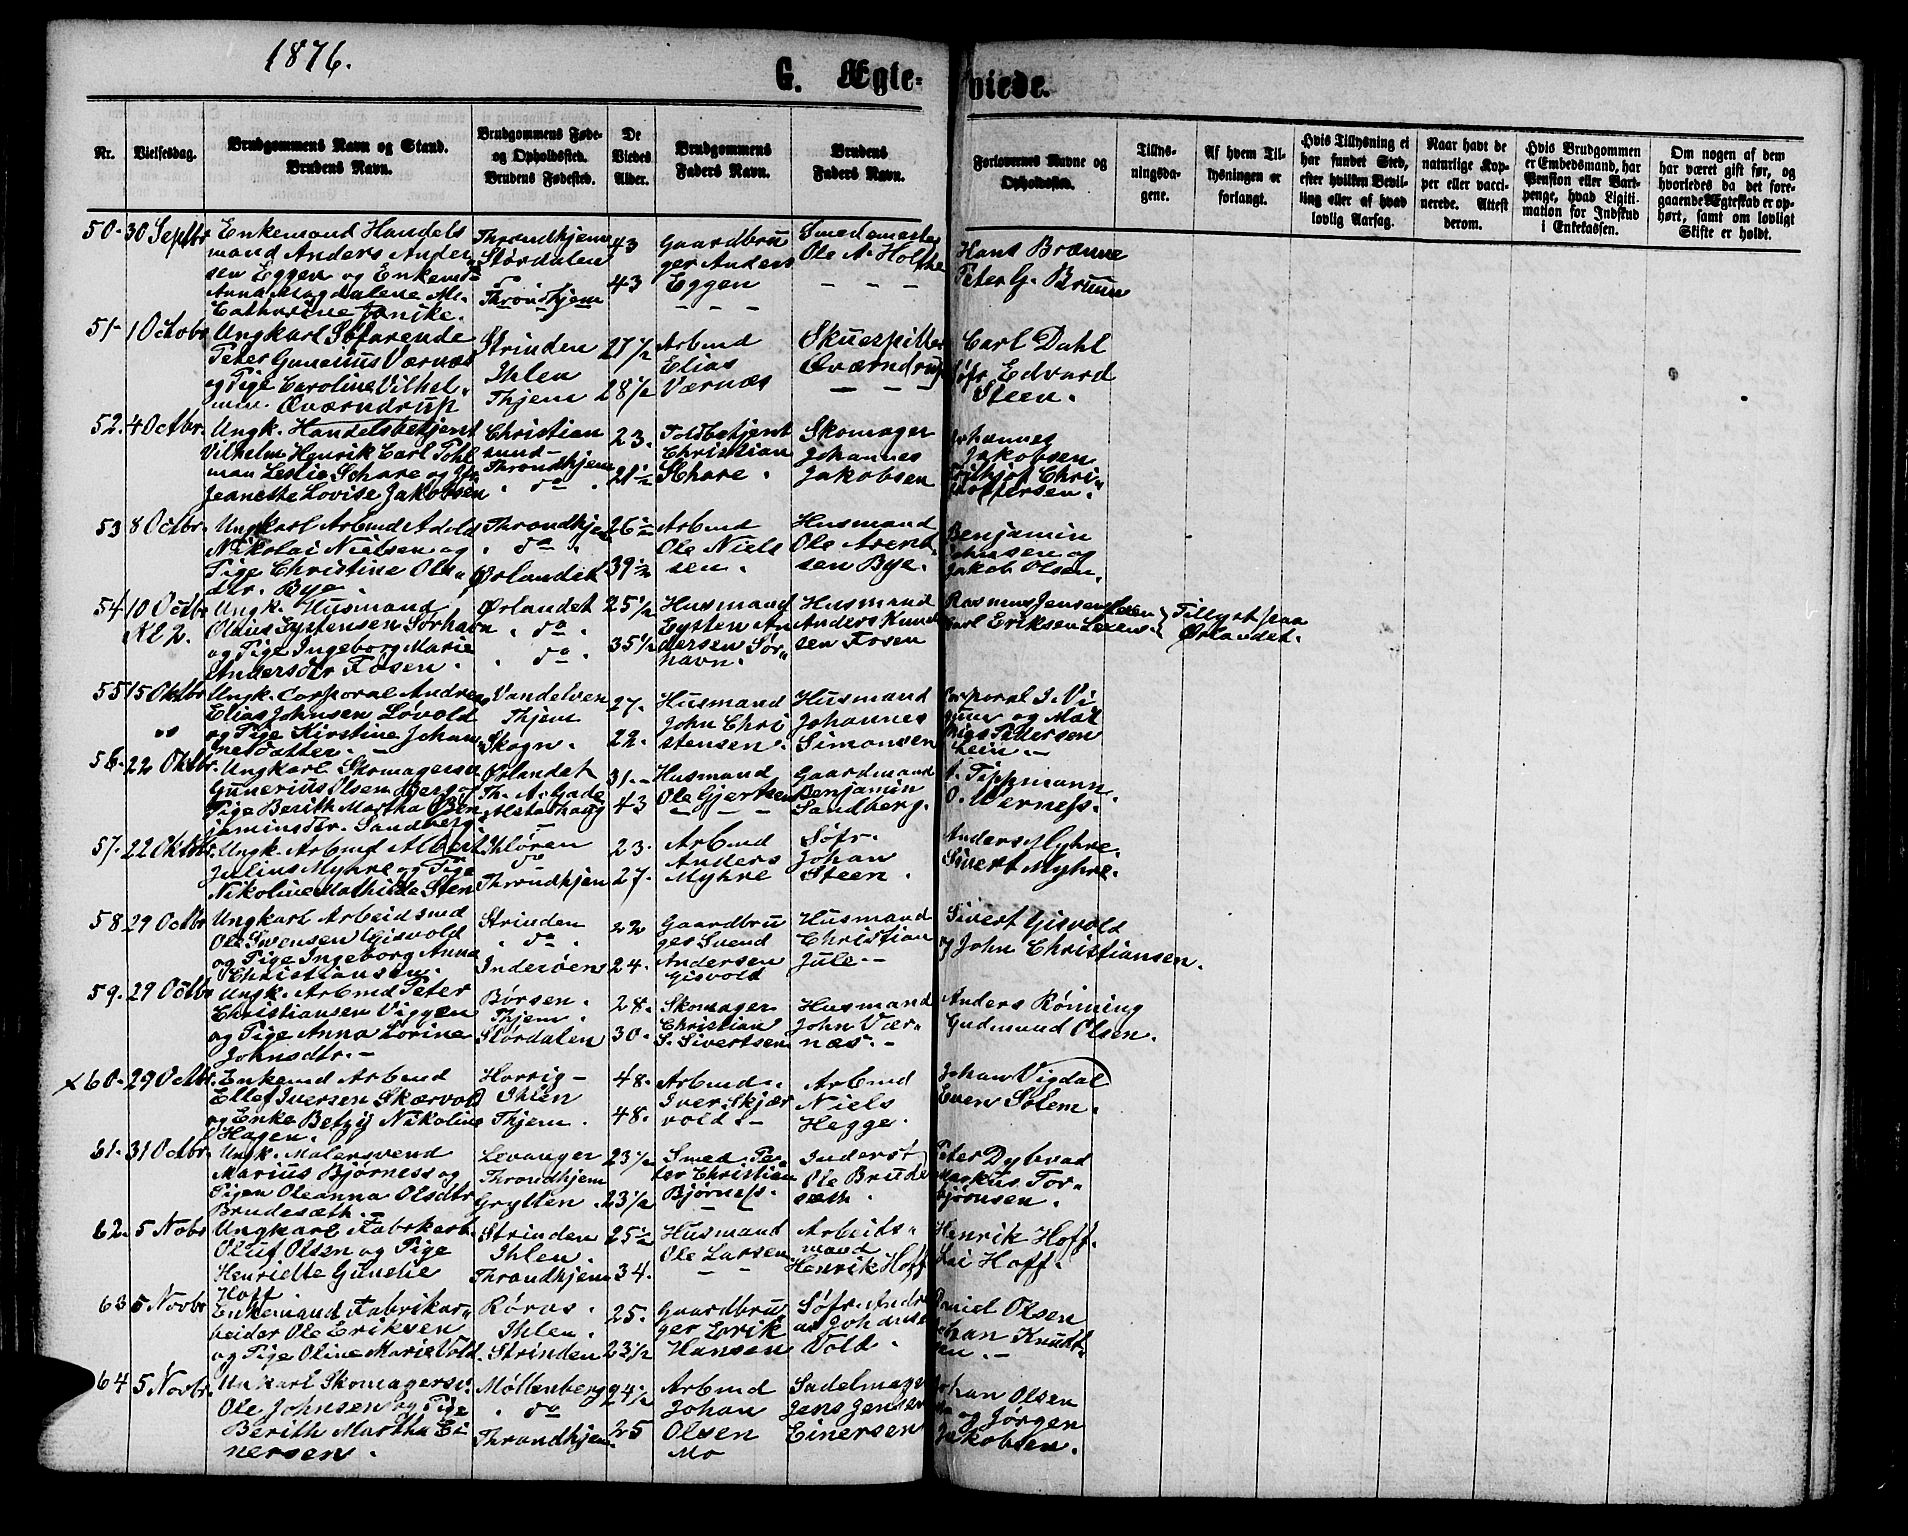 1876.
G. Ægte-viede.
Nr.
Vielsesdag.
Brudgommens Navn og Stand.
Brudens Navn.
Brudgommens Føde-
og Opholdssted.
Brudens Fødested.
De
Viedes
Alder.
Brudgommens
Faders Navn.
Brudens
Faders Navn.
Forlovernes Navne og
Opholdssted.
Tillys-
ningsda-
gene.
Af hvem Til-
lysningen er
forlangt.
Hvis Tillysning ei
har fundet Sted,
efter hvilken Bevil-
ling eller af hvad
lovlig Aarsag.
Naar havt de
naturlige Kop-
per eller vacci-
nerede. Attest
derom.
Hvis Brudgommen
er Embedsmand, har
Pension eller Vart-
penge, hvad Ligiti-
mation for Indskud
i Enkekassen.
Om nogen af dem
har været gift før, og
hvorledes da det fore-
gaaende Ægteskab er op-
hørt, samt om lovligt
Skifte er holdt.
50-
30 Septbr
Enkemand Handels
mand Anders Ander
sen Eggen og Enkemd
Anna Magdalene M.
Catharine Janike.
Throndhjem
Størdalen
Throndhjem
43
43
Gaardbru
ger Anders
Eggen
Smedemester
Ole A. Holthe
Hans Brænne
Peter G. Bruun
51-
1 Octobr
Ungkarl Søfarende
Peter Gunerius Værnæs
og Pige Caroline Vilhel-
mine Qværndrup
Strinden
Ihlen
Thjem
27 1/2
28 1/2
Arbmd
Elias
Værnæs
Skuespiller
Qværndrup
Carl Dahl
Søfr. Edvard
Steen.
52.
4 Octbr.
Ungk. Handelsbetjent
Vilhelm Henrik Carl Pohl
man Leslie Schare og Pge
Jeanette Lovise Jakobsen
Christian
sund-
Throndhjem
do
23.
21 1/2
Toldbetjent
Christian
Schare.
Skomager
Johannes
Jakobsen
Johannes
Jakobsen
Frithjof Chri-
stoffersen.
53
8 Octbr.
Ungkarl Arbmd Adolf
Nikolai Nielsen og
Pige Christine Ols-
dtr. Bye.
Throndhjem
do
Ørlandet
26 1/2
39 1/2
Arbmd
Ole Niels
sen.
Husmand
Ole Arent
sen Bye.
Benjamin
Johnsen og
Jakob Olsen.
54
10 Octbr
Kl 2.
Ungk. Husmand
Olaus Eystensen Sørhavn
og Pige Ingeborg Marie
Andersdtr Fosen.
Ørlandet
do
do
25 1/2
35 1/2
Husmand
Eysten An
dersen Sør-
havn.
Husmand
Anders Knud
sen Fosen
Rasmus Jensen Lexen
Carl Eriksen Lexens.
Tillyst paa
Ørlandet.
55
15 Oktbr
Ungk. Corporal Andreas
Elias Johnsen Løvold
og Pige Kirstine Johan
nesdatter.
Vandelven
Thjem
Skogn.
27.
22.
Husmand
John Chri
stensen.
Husmand
Johannes
Simonsen
Corporal I. Vi
gum og
Pedersen
Lein.
56.
22 Oktbr.
Ungkarl Skomagersv
Gunerius Olsen Berg og
Pige Berith Martha Ben
jaminsdtr. Sandberg
Ørlandet
Th. A. Gade
Alstadhaug
31.
43
Husmand
Ole Gjertsen
Gaardmand
Benjamin
Sandberg.
A. Tippmann.
O. Werness.
57.
22 Oktbr.
Ungk. Arbmd Albert
Julius Myhre og Pige
Nikoline Mathilde Sten
Ihløren
do
Throndhjem
23.
27.
Arbmd
Anders
Myhre
Søfr.
Johan
Steen.
Anders Myhre.
Sivert Myhre.
58
29 Octbr
Ungkarl Arbeidsmd
Ole Svensen Gisvold
og Pige Ingeborg Anna
Christiansen.
Strinden
do
Inderøen
22
24.
Gaardbru
ger Svend
Andersen
Gisvold
Husmand
Christian
Jule.
Sivert Gisvold
og John Christiansen.
59.
29 Octbr
Ungk. Arbmd Peter
Christiansen Viggen
og Pige Anna Lorine
Johnsdtr.
Børsen.
Thjem.
Størdalen
28.
30.
Skomager
Christian
S. Sivertsen
Husmand
John Vær-
næs.
Anders Rønning
Gudmund Olsen.
x 60-
29 Octbr.
Enkemd Arbmd
Ellef Iversen Skærvold
og Enke Betzy Nikoline
Hagen.
Horrig
Ihlen
Thjem.
48.
48.
Arbmd.
Iver Skjær
vold.
Arbmd
Niels
Hegge.
Johan Vigdal
Even Solem.
61.
31 Octbr.
Ungk. Malersvend
Marius Bjørness og
Pigen Oleanna Olsdtr
Brudesæth.
Levanger
Throndhjem
Grytten.
23 1/2
23 1/2
Smed Pe-
ter Christian
Bjørness.
Inderst
Ole Brude
sæth.
Peter Dybvad
Markus Tor-
bjørnsen.
62.
5 Nobr
Ungkarl Fabrkarb.
Oluf Olsen og Pige
Henriette Gunelie
Hoff
Strinden
Ihlen.
Throndhjem
25 1/2
34.
Husmand
Ole Larsen
Arbeids-
mand
Henrik Hoff
Henrik Hoff.
Kai Hoff.
63
5 Novbr
Enkemand Fabrikar-
beider Ole Eriksen
og Pige Oline Marie Vold.
Røros.
Ihlen.
Strinden
25.
23 1/2
Gaardbru
ger Erik
Hansen
Søfr. Andre
as Johansen
Vold.
Daniel Olsen
Johan Knudt-
sen.
64
5 Novbr.
Unkarl Skomagersv.
Ole Johnsen og Pige
Berith Martha Ei
nersen.
Møllenberg
do
Throndhjem
24 1/2
25
Arbmd
Johan
Olsen
Mo
Sadelmager
Jens Jensen
Einersen
Johan Olsen
og Jørgen
Jakobsen.